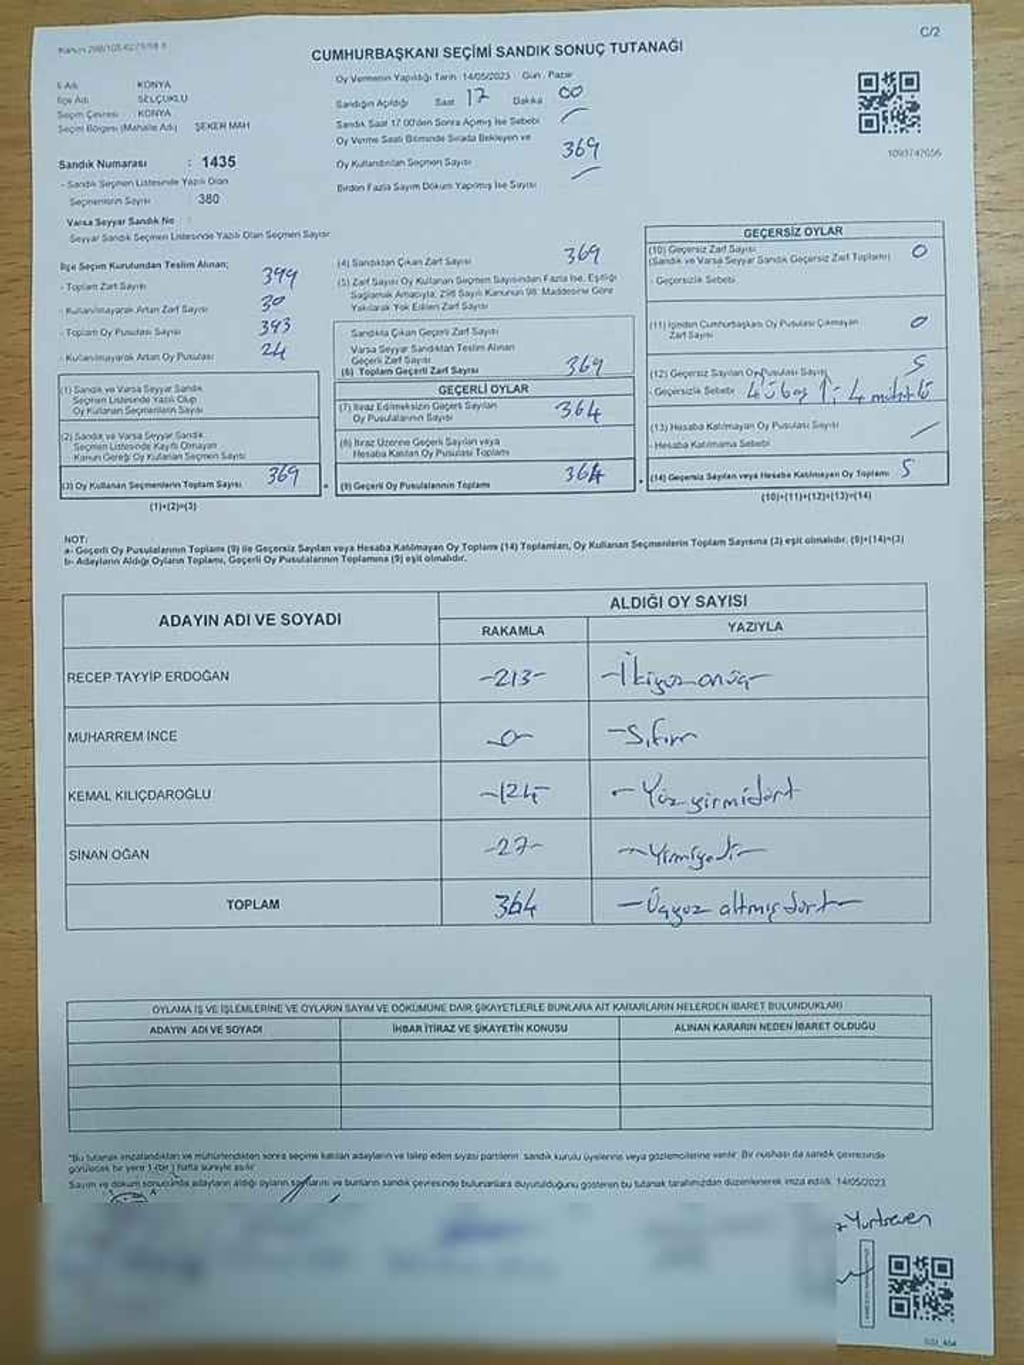 C/2
CUMHURBAŞKANI SEÇİMİ SANDIK SONUÇ TUTANAĞI
İl Adı KONYA
İlçe Adı SELÇUKLU
Seçim Çevresi KONYA
Seçim Bölgesi (Mahalle Adı) ŞEKER MAH
Sandık Numarası : 1435
- Sandık Seçmen Listesinde Yazılı Olan
Seçmenlerin Sayısı 380
Varsa Seyyar Sandık No :
Seyyar Sandık Seçmen Listesinde Yazılı Olan Seçmen Sayısı
Oy Vermenin Yapıldığı Tarih 14/05/2023 Gün : Pazar
Sandığın Açıldığı Saat 17 Dakika 00
Sandık Saat 17.00'den Sonra Açmış İse Sebebi
Oy Verme Saati Bitiminde Sırada Bekleyen ve
Oy Kullandırılan Seçmen Sayısı 369
Birden Fazla Sayım Döküm Yapılmış İse Sayısı
1093747056
İlçe Seçim Kurulundan Teslim Alınan;
- Toplam Zarf Sayısı 399
- Kullanılmayarak Artan Zarf Sayısı 30
- Toplam Oy Pusulası Sayısı 393
- Kullanılmayarak Artan Oy Pusulası 24
(1) Sandık ve Varsa Seyyar Sandık
Seçmen Listesinde Yazılı Olup
Oy Kullanan Seçmenlerin Sayısı
(2) Sandık ve Varsa Seyyar Sandık
Seçmen Listesinde Kayıtlı Olmayan
Kanun Gereği Oy Kullanan Seçmen Sayısı
(3) Oy Kullanan Seçmenlerin Toplam Sayısı 369
(1)+(2)=(3)
(4) Sandıktan Çıkan Zarf Sayısı 369
(5) Zarf Sayısı Oy Kullanan Seçmen Sayısından Fazla İse, Eşitliği
Sağlamak Amacıyla, 298 Sayılı Kanunun 98. Maddesine Göre
Yakılarak Yok Edilen Zarf Sayısı
Sandıkta Çıkan Geçerli Zarf Sayısı
Varsa Seyyar Sandıktan Teslim Alınan
Geçerli Zarf Sayısı
(6) Toplam Geçerli Zarf Sayısı 369
GEÇERLİ OYLAR
(7) İtiraz Edilmeksizin Geçerli Sayılan
Oy Pusulalarının Sayısı 364
(8) İtiraz Üzerine Geçerli Sayılan veya
Hesaba Katılan Oy Pusulaları Toplamı
(9) Geçerli Oy Pusulalarının Toplamı 364
GEÇERSİZ OYLAR
(10) Geçersiz Zarf Sayısı
(Sandık ve Varsa Seyyar Sandık Geçersiz Zarf Toplamı) 0
- Geçersizlik Sebebi
(11) İçinden Cumhurbaşkanı Oy Pusulası Çıkmayan
Zarf Sayısı 0
(12) Geçersiz Sayılan Oy Pusulası Sayısı 5
- Geçersizlik Sebebi
(13) Hesaba Katılmayan Oy Pusulası Sayısı
- Hesaba Katılmama Sebebi
(14) Geçersiz Sayılan veya Hesaba Katılmayan Oy Toplamı 5
(10)+(11)+(12)+(13)=(14)
NOT:
a- Geçerli Oy Pusulalarının Toplamı (9) ile Geçersiz Sayılan veya Hesaba Katılmayan Oy Toplamı (14) Toplamları, Oy Kullanan Seçmenlerin Toplam Sayısına (3) eşit olmalıdır. (9)+(14)=(3)
b- Adayların Aldığı Oyların Toplamı, Geçerli Oy Pusulalarının Toplamına (9) eşit olmalıdır.
ADAYIN ADI VE SOYADI ALDIĞI OY SAYISI
RAKAMLA YAZIYLA
RECEP TAYYİP ERDOĞAN -213- -İkiyüzonüç-
MUHARREM İNCE -0- -Sıfır-
KEMAL KILIÇDAROĞLU -124- -Yüzyirmidört
SİNAN OĞAN -27- -Yirmiyedi-
TOPLAM 364 -Üçyüz altmışdört-
OYLAMA İŞ VE İŞLEMLERİNE VE OYLARIN SAYIM VE DÖKÜMÜNE DAİR ŞİKAYETLERLE BUNLARA AİT KARARLARIN NELERDEN İBARET BULUNDUKLARI
ADAYIN ADI VE SOYADI İHBAR İTİRAZ VE ŞİKAYETİN KONUSU ALINAN KARARIN NEDEN İBARET OLDUĞU
*Bu tutanak imzalandıktan ve mühürlendikten sonra seçime katılan adayların ve talep eden siyasi partilerin sandık kurulu üyelerine veya gözlemcilerine verilir. Bir nüshası da sandık çevresinde
görülecek bir yere 1 (bir) hafta süreyle asılır.
Sayım ve döküm sonucunda adayların aldığı oyların sayılarını ve bunların sandık çevresinde bulunanlara duyurulduğunu gösteren bu tutanak tarafımızdan düzenlenerek imza edildi. 14/05/2023
Yurtseven